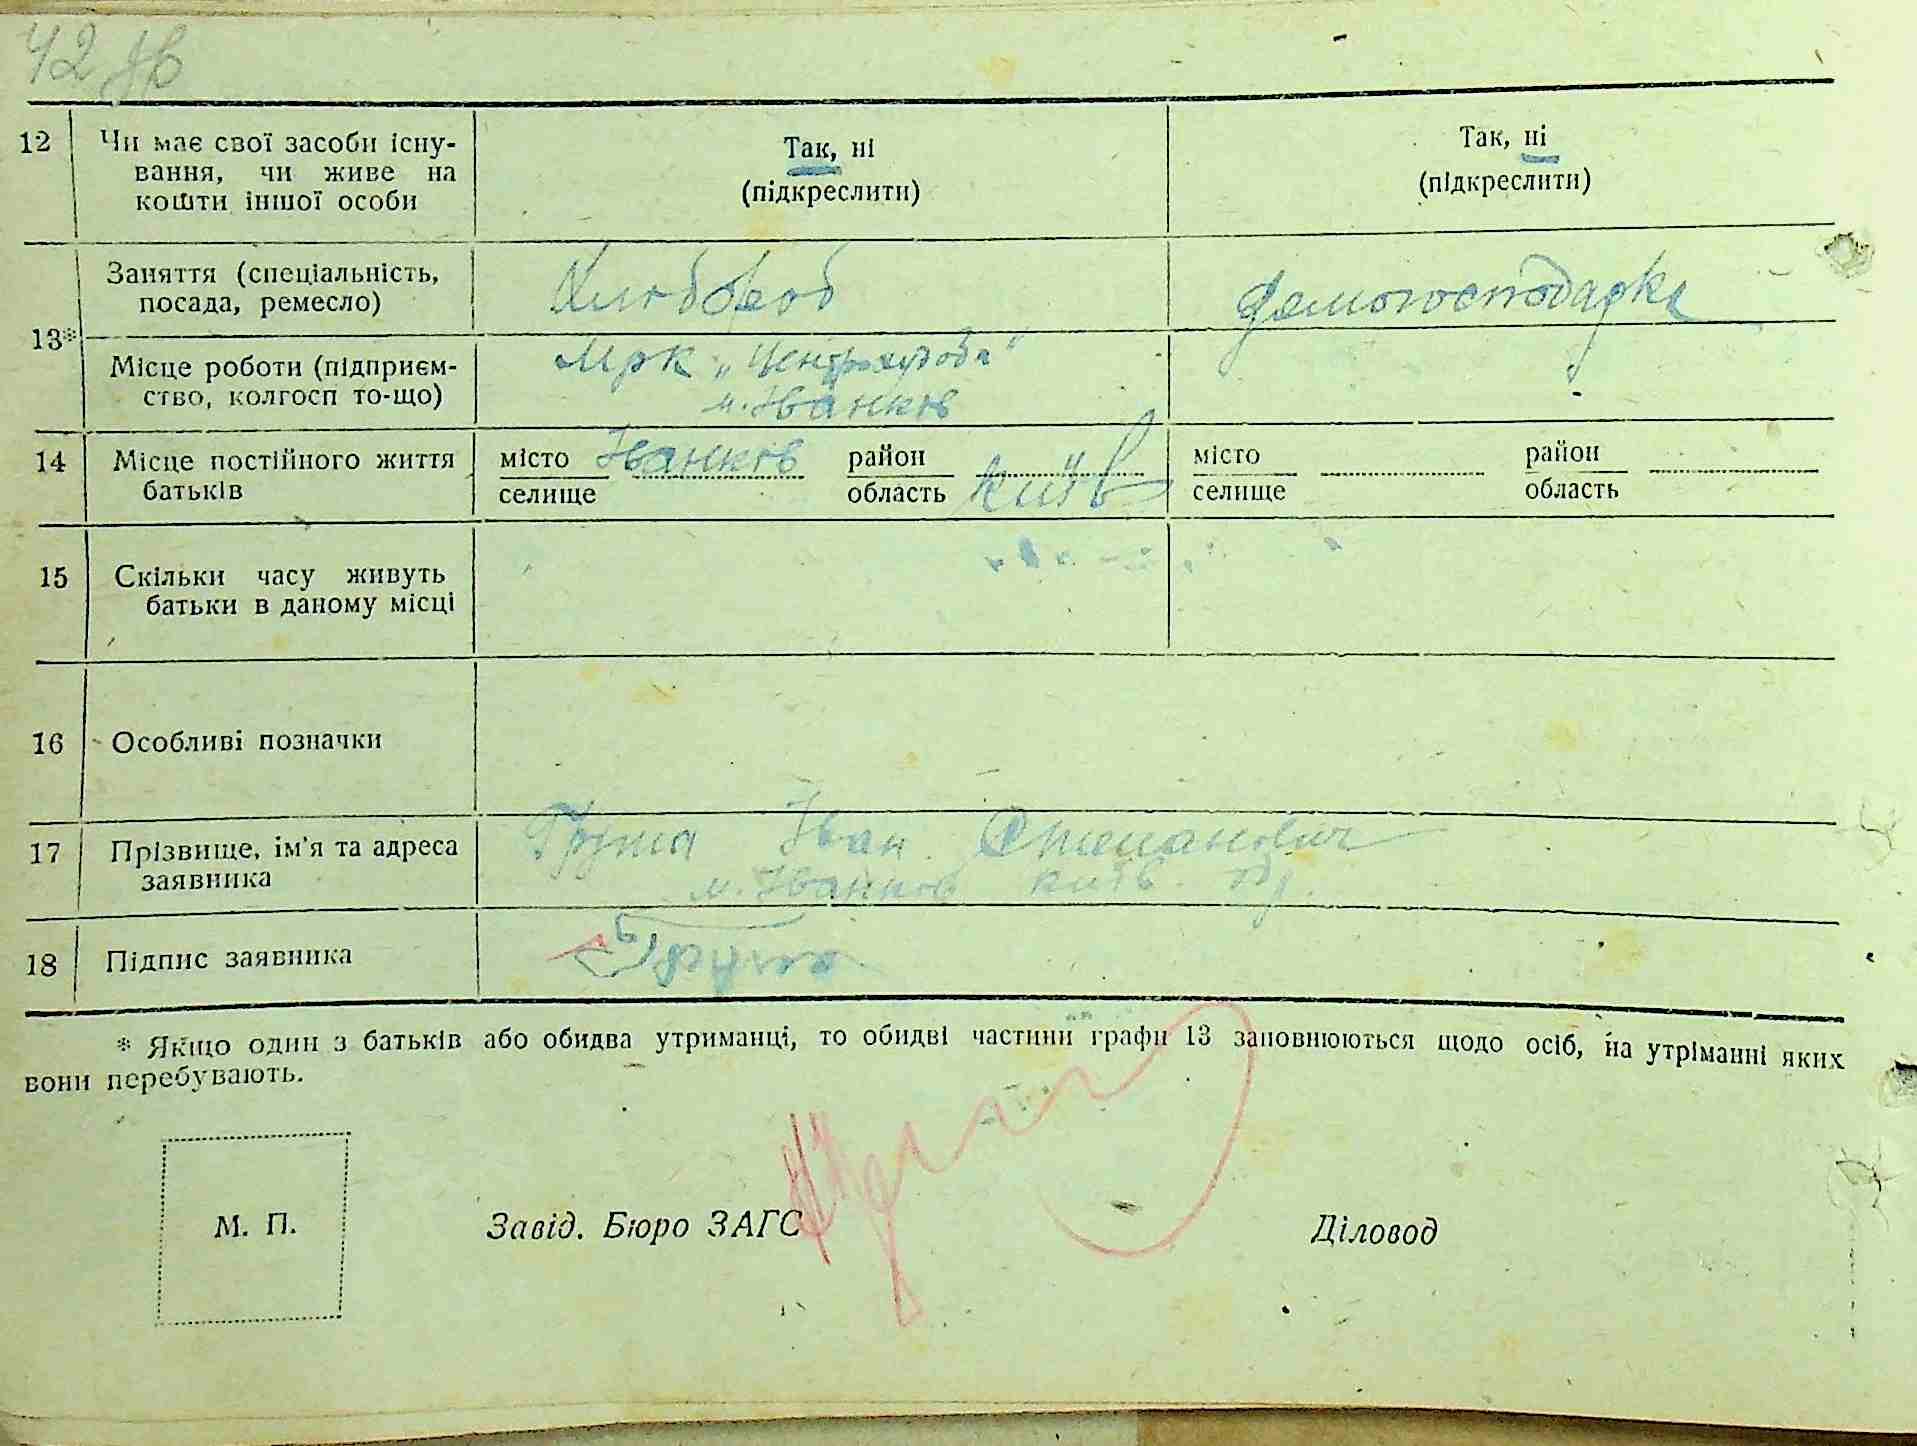 42 зв
12 Чи має свої засоби існу- Так, ні Так, ні
вання, чи живе на (підкреслити) (підкреслити)
кошти іншої особи
Заняття (спеціальність, домогосподарка
посада, ремесло)
13*
Місце роботи (підприєм- Мрк
ство, колгосп то-що) м. Іванків
14 Місце постійного життя місто Іванків район місто район
батьків селище область Київ селище область
15 Скільки часу живуть
батьки в даному місці
16 Особливі позначки
17 Прізвище, ім'я та адреса Груша Іван Степанович
заявника м. Іванків Київ. обл.
18 Підпис заявника Груша
* Якщо один з батьків або обидва утриманці, то обидві частини графи 13 заповнюються щодо осіб, на утріманні яких
вони перебувають.
М. П. Завід. Бюро ЗАГС Діловод